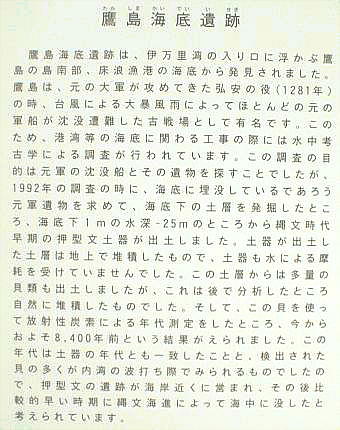 たか しま かい てい い せき
鷹島海底遺跡
鷹島海底遺跡は、伊万里湾の入り口に浮かぶ鷹
島の島南部、床浪漁港の海底から発見されました。
鷹島は、元の大軍が攻めてきた弘安の役(1281年)
の時、台風による大暴風雨によってほとんどの元の
軍船が沈没遭難した古戦場として有名です。この
ため、港湾等の海底に関わる工事の際には水中考
古学による調査が行われています。この調査の目
的は元軍の沈没船とその遺物を探すことでしたが、
1992年の調査の時に、海底に埋没しているであろう
元軍遺物を求めて、海底下の土層を発掘したとこ
ろ、海底下1mの水深-25mのところから縄文時代
早期の押型文土器が出土しました。土器が出土し
た土層は地上で堆積したもので、土器も水による摩
耗を受けていませんでした。この土層からは多量の
貝類も出土しましたが、これは後で分析したところ
自然に堆積したものでした。そして、この貝を使っ
て放射性炭素による年代測定をしたところ、今から
およそ8,400年前という結果がえられました。この
年代は土器の年代とも一致したことと、検出された
貝の多くが内湾の波打ち際でみられるものでしたの
で、押型文の遺跡が海岸近くに営まれ、その後比
較的早い時期に縄文海進によって海中に没したと
考えられています。